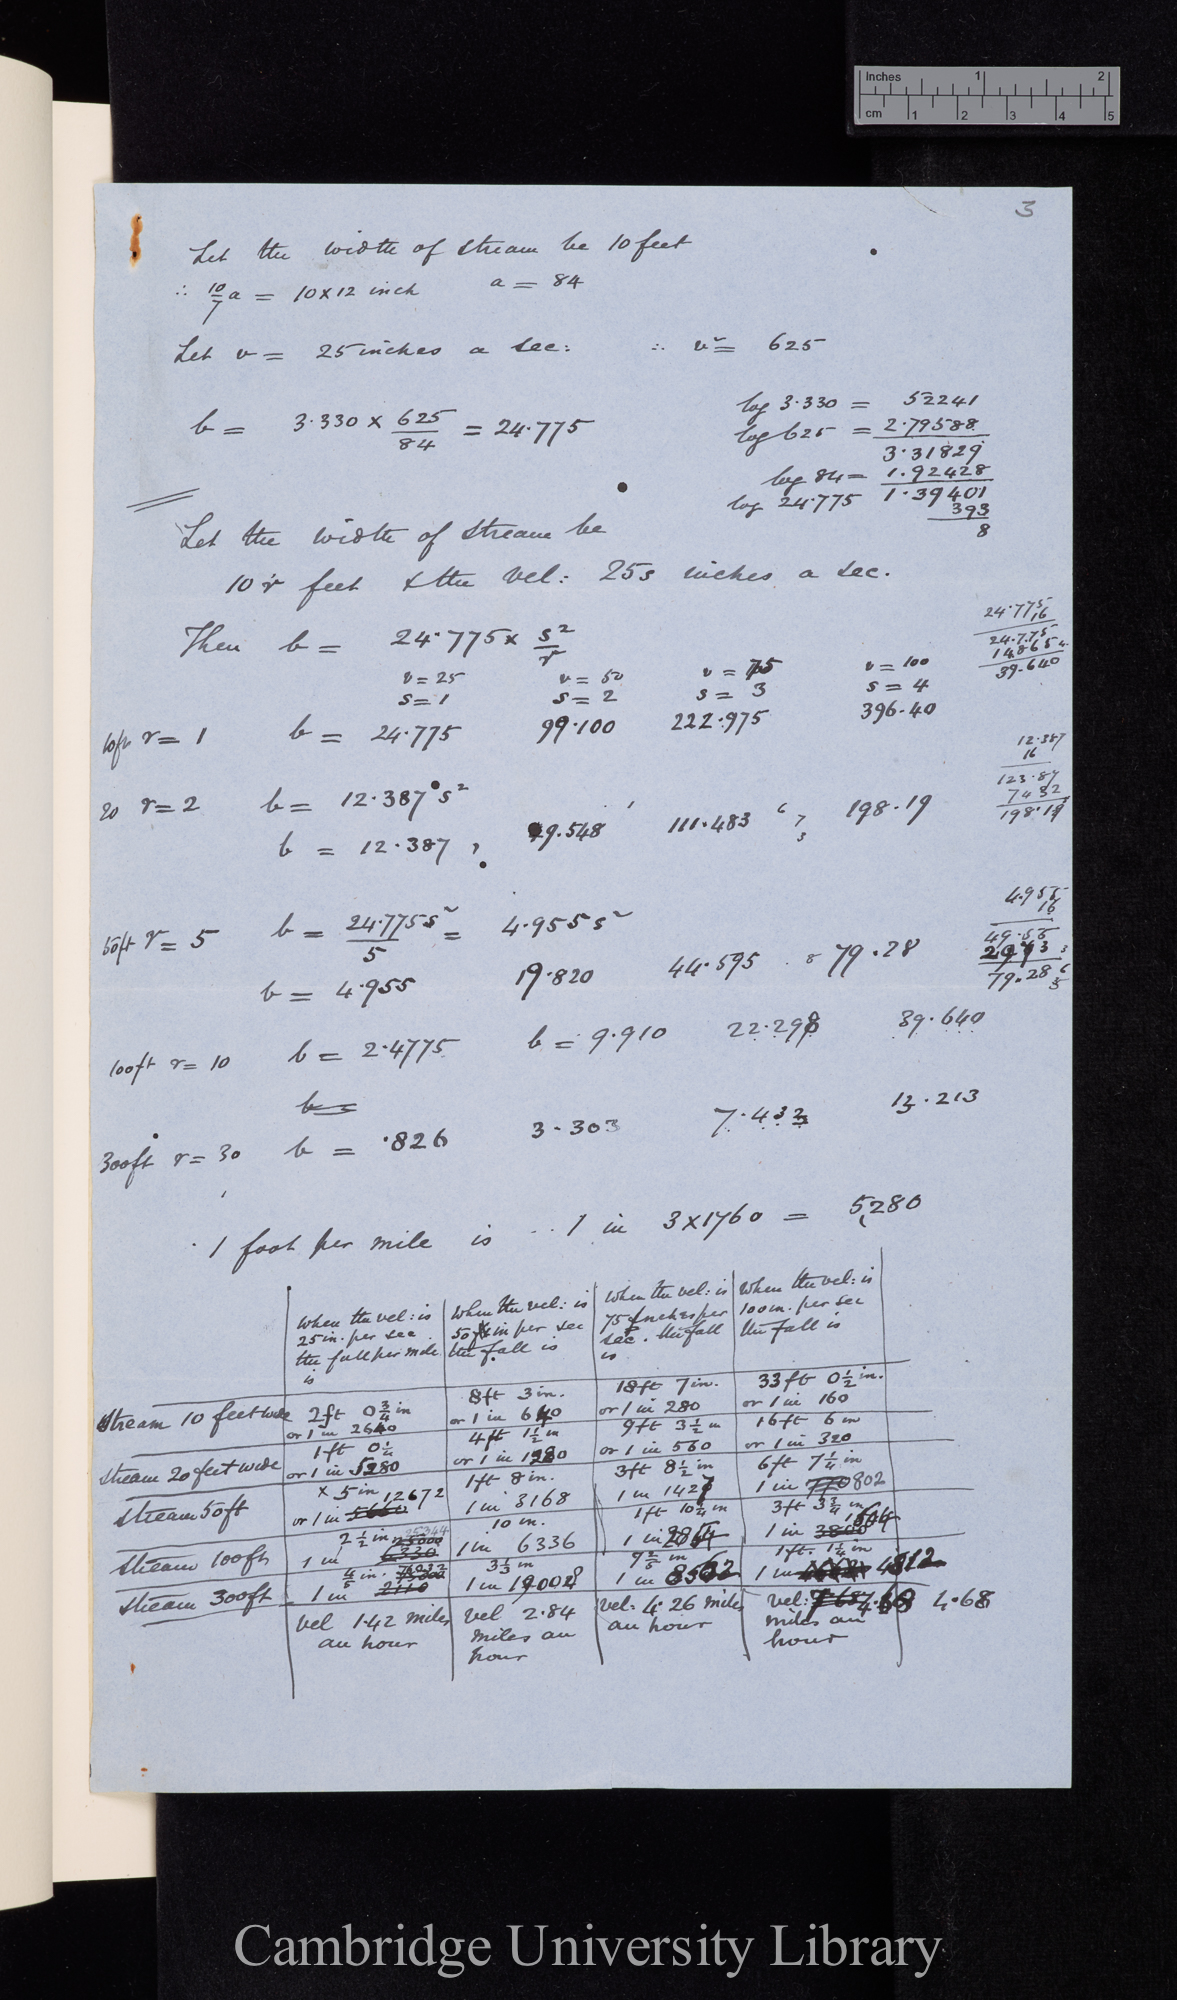 Inches 1 2
cm 1 2 3 4 5
3
Let the width of stream be 10 feet
∴ 10/7 a = 10×12 inch a = 84
Let v = 25 inches a sec: ∴ v² = 625
b = 3.330 × 625/84 = 24.775
log 3.330 = 52241
log 625 = 2.79588
3.31829
log 84 = 1.92428
log 24.775 1.39401
393
8
Let the width of stream be
10 r feet & the vel: 25s inches a sec.
Then b = 24.775 × s²/r
24.775
16
24.775
14865
39.640
v = 25 v = 50 v = 75 v = 100
s = 1 s = 2 s = 3 s = 4
10ft r = 1 b = 24.775 99.100 222.975 396.40
12.387
16
123.87
7432
198.19
20 r = 2 b = 12.387 s²
b = 12.387, 49.548 111.483 198.19
4.955
16
49.55
79.28
50ft r = 5 b = 24.775s²/5 = 4.955 s²
b = 4.955 19.820 44.595 79.28
100ft r = 10 b = 2.4775 b = 9.910 22.298 39.640
b =
300ft r = 30 b = .826 3.303 7.432 13.213
1 foot per mile is 1 in 3×1760 = 5,280
When the vel: is 25 in. per sec. the fall per mile is
When the vel: is 50 in per sec the fall is
When the vel: is 75 inches per sec. the fall is
When the vel: is 100 in. per sec the fall is
Stream 10 feet wide 2ft 0¾ in 8ft 3 in. 18ft 7 in. 33ft 0½ in.
or 1 in 2640 or 1 in 640 or 1 in 280 or 1 in 160
Stream 20 feet wide 1ft 0¼ 4ft 1½ in 9ft 3½ in 16ft 6 in
or 1 in 5280 or 1 in 1280 or 1 in 560 or 1 in 320
Stream 50ft × 5 in 1ft 8 in. 3ft 8½ in 6ft 7¼ in
or 1 in 12672 1 in 3168 1 in 1427 1 in 770 802
Stream 100ft 2½ in 10 in. 1ft 10¼ in 3ft 3¾ in
1 in 25344 1 in 6336 1 in 1604
Stream 300ft ⅘ in. 3⅓ in 9⅖ in 1ft. 1¼ in
1 in 1 in 19008 1 in 1 in 4812
vel 1.42 miles an hour
vel 2.84 miles an hour
vel: 4.26 miles an hour
vel: 4.68 miles an hour
4.68
Cambridge University Library